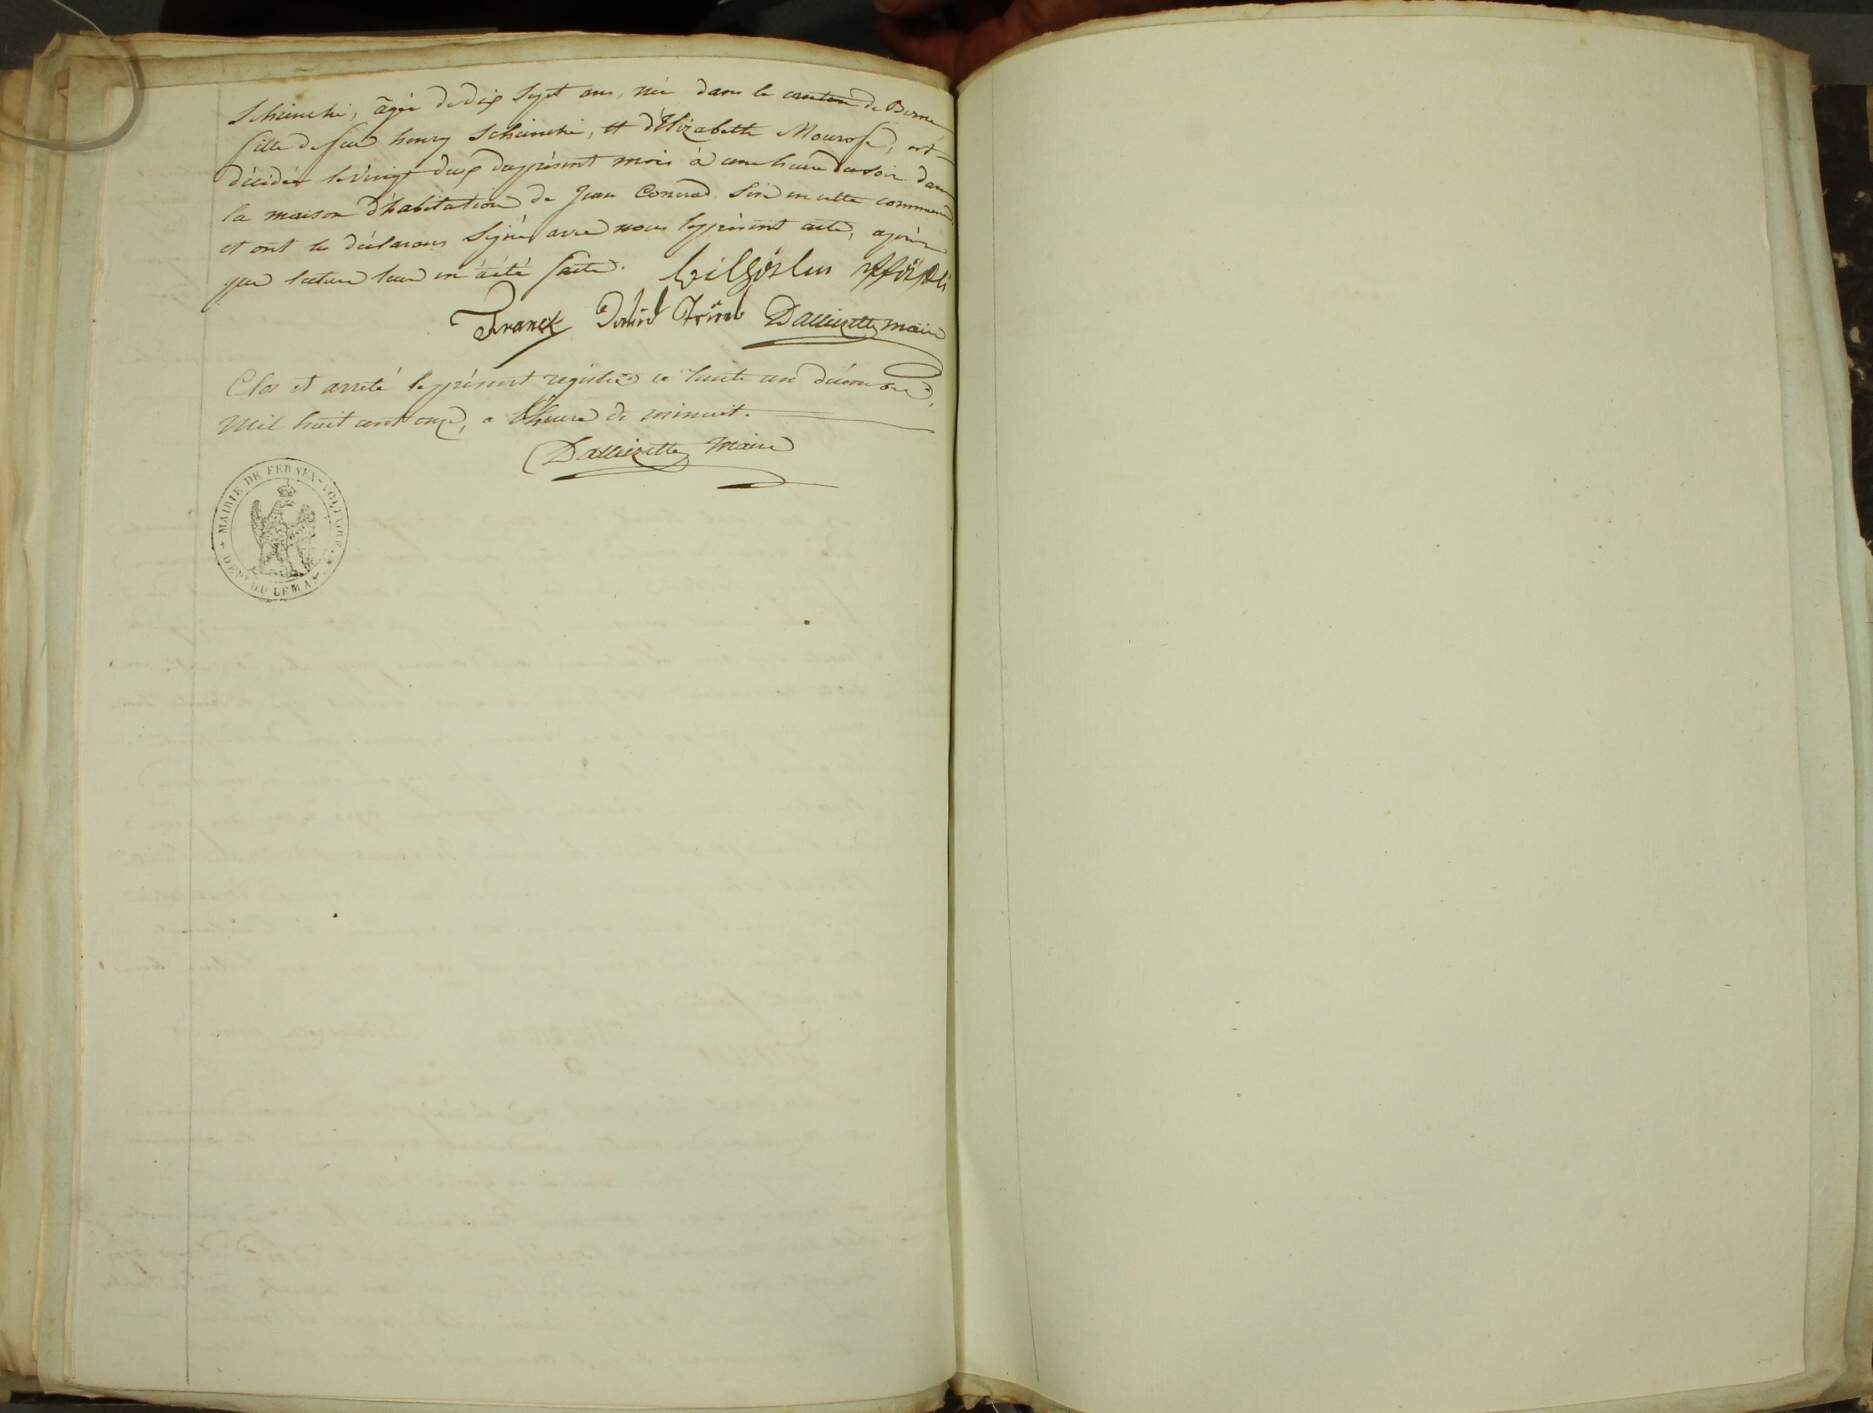 Scheinché, agée de dix sept ans, née dans le canton de Berne
fille de feu henry Scheinché, et d'Elizabeth Mourosse, est
décédée le vingt deux du présent mois à une heure du soir dans
la maison d'habitation de Jean Conrad Sise en cette commune
et ont les déclarans Signé avec nous le présent acte, après
que lecture leur en a été faite.
Franck David Dallizette maire
Clos et arreté le présent registre ce trente un décembre,
Mil huit cent onze, a l'heure de minuit.
Dallizette maire
MAIRIE DE FERNEX-VOLTAIRE
DEPT DU LEMAN